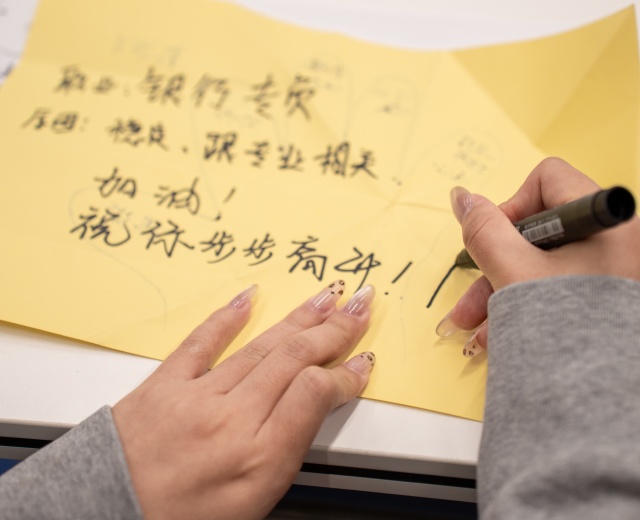 职业:银行专员
原因:稳定、跟专业相关.
加油!
祝你步步高升!